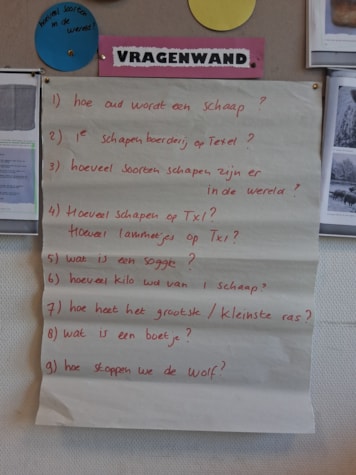 hoeveel soorten
in de wereld?
VRAGENWAND
1) hoe oud wordt een schaap?
2) 1e schapenboerderij op Texel?
3) hoeveel soorten schapen zijn er
in de wereld?
4) Hoeveel schapen op Txl?
Hoeveel lammetjes op Txl?
5) wat is een
6) hoeveel kilo wol van 1 schaap?
7) hoe heet het grootste / kleinste ras?
8) wat is een boetje?
9) hoe stoppen we de wolf?